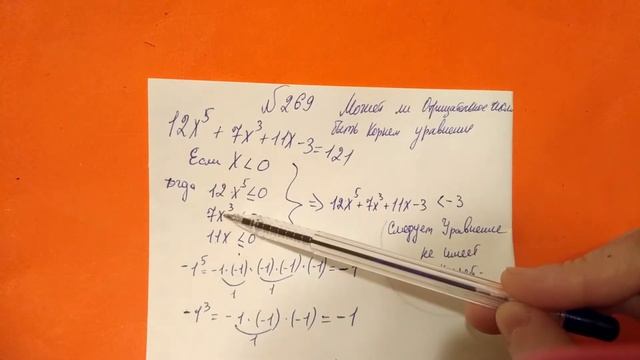 №269 Может ли Отрицательное число
быть корнем уравнение
12x⁵ + 7x³ + 11x - 3 = 121
Если x < 0
тогда 12x⁵ ≤ 0
7x³
11x ≤ 0
⇒ 12x⁵ + 7x³ + 11x - 3 < -3
Следует Уравнение
не имеет
-1⁵ = -1·(-1)·(-1)·(-1)·(-1) = -1
1 1
-1³ = -1·(-1)·(-1) = -1
1